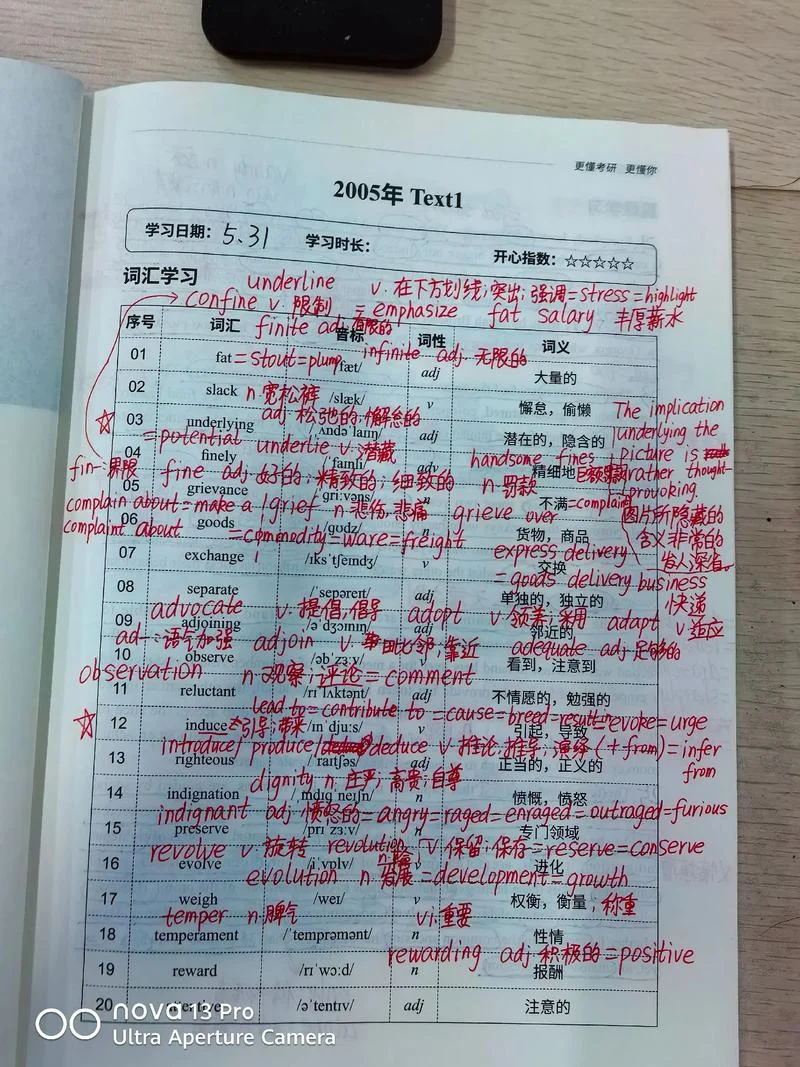 更懂考研 更懂你
2005年 Text1
学习日期: 5.31 学习时长: 开心指数: ☆☆☆☆☆
词汇学习
underline v. 在下方划线;突出;强调=stress=highlight
confine v. 限制 = emphasize fat salary 丰厚薪水
序号 词汇 音标 词性 词义
finite adj. 有限的
infinite adj. 无限的
01 fat =stout=plump /fæt/ adj 大量的
02 slack n.宽松裤 /slæk/ v 懈怠,偷懒
adj.松弛的;懈怠的
☆ 03 underlying /ˌʌndəˈlaɪɪŋ/ adj 潜在的,隐含的
=potential underlie v.潜藏
The implication
underlying the
picture is
rather thought-
provoking.
图片所隐藏的
含义非常的
发人深省。
04 finely /ˈfaɪnli/ adv 精细地
handsome fines 巨额罚款
fin-:界限 fine adj.好的;精致的;细致的 n.罚款
05 grievance /ˈgriːvəns/ n 不满=complain
complain about=make a grief n.悲伤,悲痛 grieve over
complaint about
06 goods /gʊdz/ n 货物,商品
=commodity=ware=freight
07 exchange /ɪksˈtʃeɪndʒ/ v 交换
express delivery
=goods delivery business
快递
08 separate /ˈsepəreɪt/ adj 单独的,独立的
advocate v.提倡;倡导 adopt v.领养;采用 adapt v.适应
09 adjoining /əˈdʒɔɪnɪŋ/ adj 邻近的
ad-:语气加强 adjoin v.毗邻;靠近 adequate adj.足够的
10 observe /əbˈzɜːv/ v 看到,注意到
observation n.观察;评论=comment
11 reluctant /rɪˈlʌktənt/ adj 不情愿的,勉强的
lead to=contribute to=cause=breed=result in=evoke=urge
☆ 12 induce 引导;带来 /ɪnˈdjuːs/ v 引起,导致
introduce/produce/deduce v.推论;推导;演绎(+from)=infer
from
13 righteous /ˈraɪtʃəs/ adj 正当的,正义的
dignity n.庄严;高贵;自尊
14 indignation /ˌɪndɪgˈneɪʃn/ n 愤慨,愤怒
indignant adj.愤怒的=angry=raged=enraged=outraged=furious
15 preserve /prɪˈzɜːv/ n 专门领域
v.保留;保存=reserve=conserve
revolve v.旋转 revolution
16 evolve /ɪˈvɒlv/ v 进化
evolution n.发展=development=growth
17 weigh /weɪ/ v 权衡,衡量;称重
temper n.脾气 vi.重要
18 temperament /ˈtemprəmənt/ n 性情
rewarding adj.积极的=positive
19 reward /rɪˈwɔːd/ n 报酬
20 attentive /əˈtentɪv/ adj 注意的
nova 13 Pro
Ultra Aperture Camera